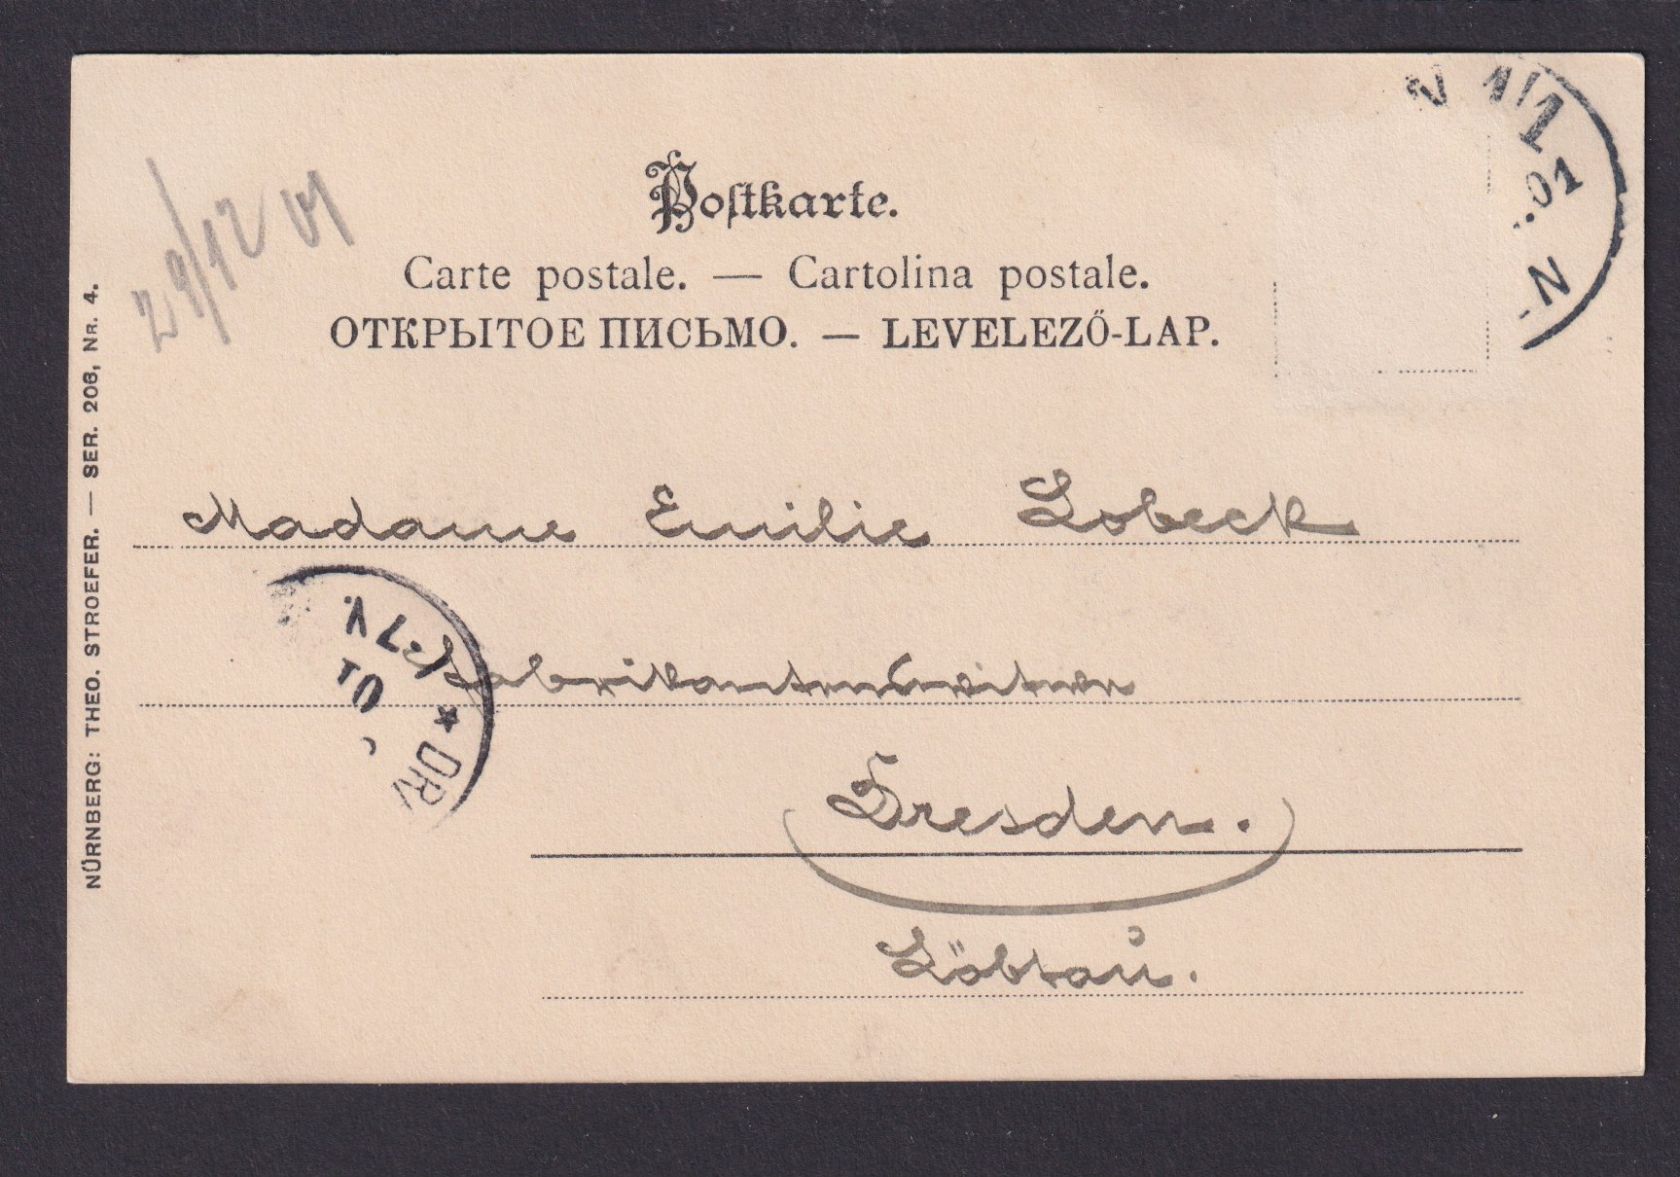 29/12 01
Postkarte.
Carte postale. — Cartolina postale.
ОТКРЫТОЕ ПИСЬМО. — LEVELEZŐ-LAP.
Madame Emilie Lobeck
Dresden.
Löbtau.
NÜRNBERG: THEO. STROEFER. — SER. 206, NR. 4.
1/1
01
-N
7 V.
01
* DR